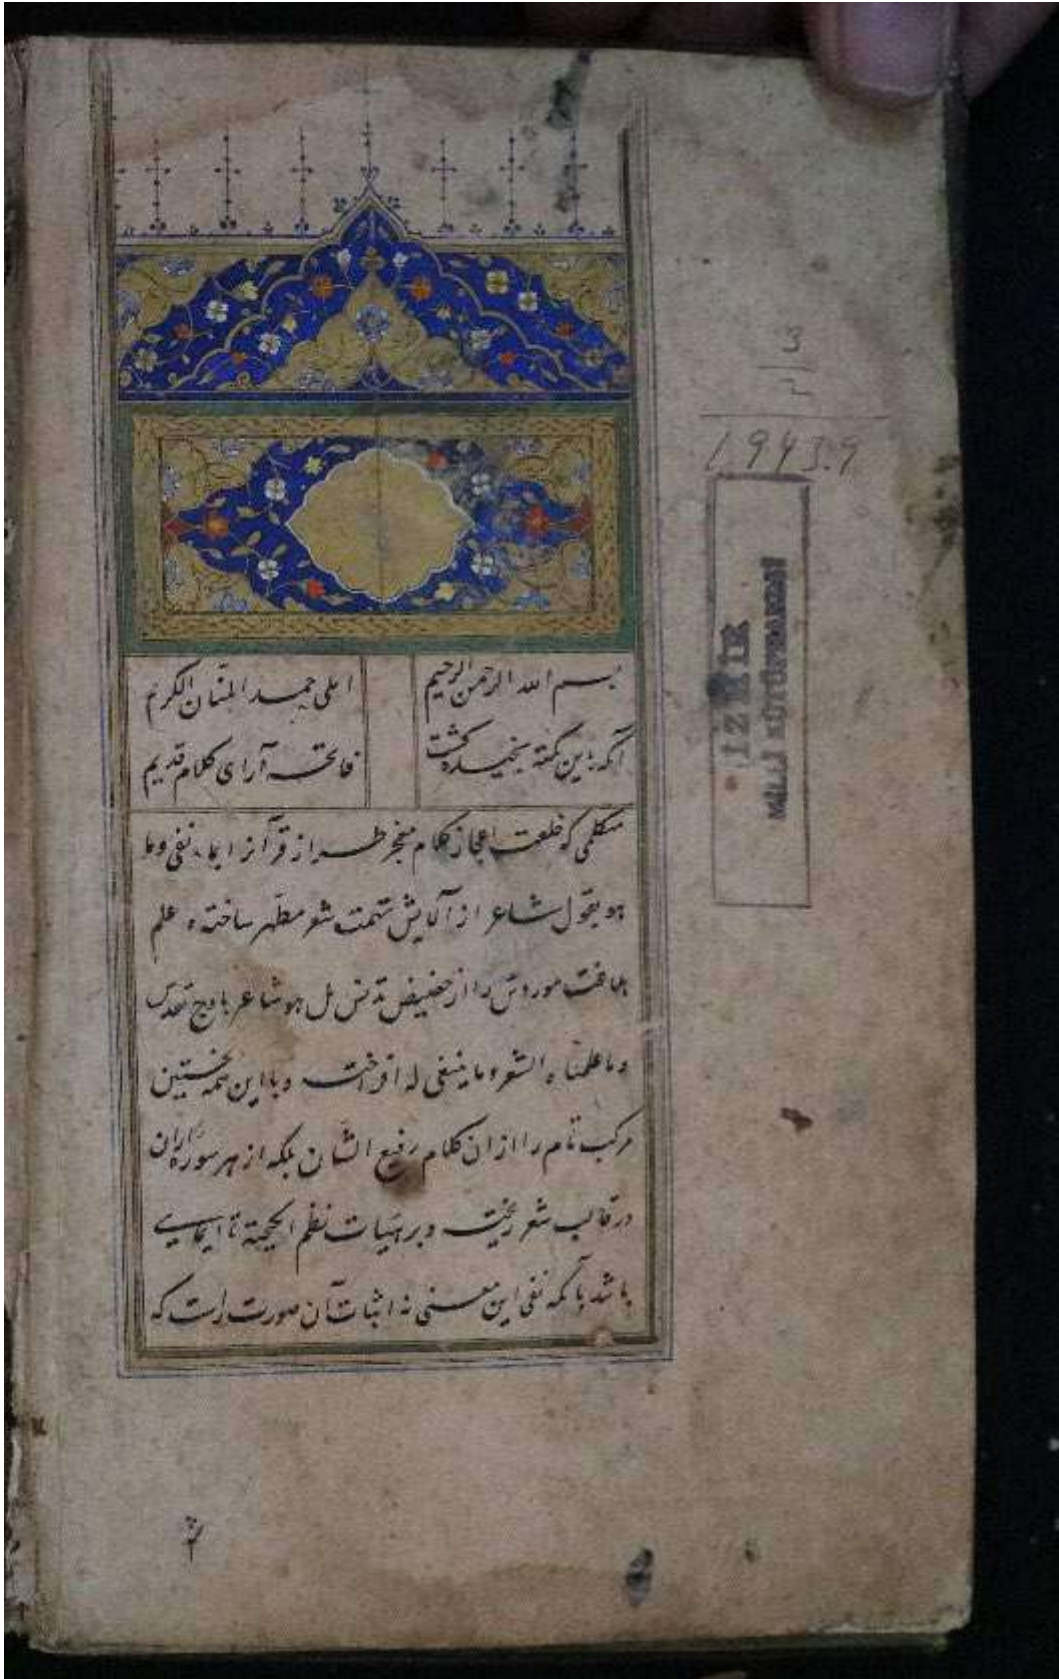 3
2
1943.9
İZMİR
MİLLİ KÜTÜPHANESİ
بسم الله الرحمن الرحيم
املی حمد المنان الکریم
آنکه باین نکته سنجیده گشت
فاتحه آرای کلام قدیم
متکلمی که خلعت اعجاز کلام معجز طراز قرآنرا بماء نفی وما
هو بقول شاعر از آلایش تهمت شعر مطهر ساخته و علم
بلاغت موردش را از حضیض تدنس بل هو شاعر باوج تقدس
وما علمناه الشعر وما ینبغی له افراخت و با این همه نخستین
مرکب تام را از ان کلام رفیع الشان بلکه از هر سوره ازان
در قالب شعر ریخت و بر هیات نظم انگیخته تا ایمایی
باشد بآنکه نفی این معنی نه اثبات آن صورت راست که